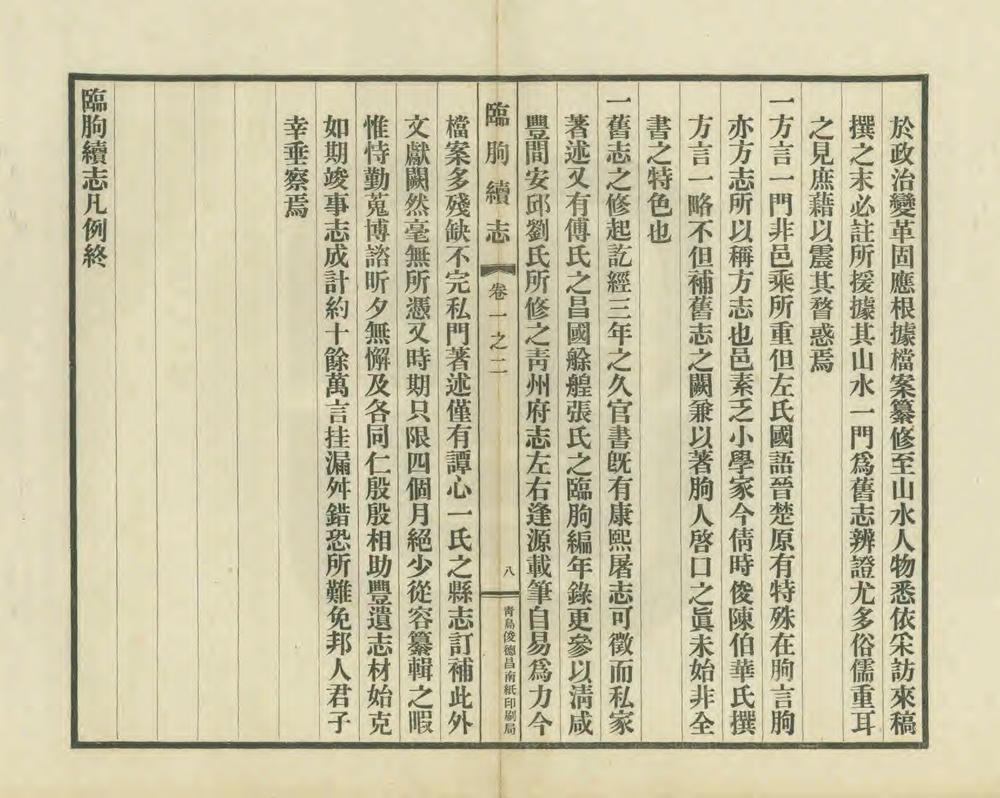 於政治變革固應根據檔案纂修至山水人物悉依采訪來稿
撰之末必註所援據其山水一門爲舊志辨證尤多俗儒重耳
之見庶藉以震其瞀惑焉
一方言一門非邑乘所重但左氏國語晉楚原有特殊在朐言朐
亦方志所以稱方志也邑素乏小學家今倩時俊陳伯華氏撰
方言一略不但補舊志之闕兼以著朐人啓口之眞未始非全
書之特色也
一舊志之修起訖經三年之久官書旣有康熙屠志可徵而私家
著述又有傅氏之昌國艅艎張氏之臨朐編年錄更參以淸咸
豐間安邱劉氏所修之靑州府志左右逢源載筆自易爲力今
臨朐續志 卷一之二 八 靑島俊德昌南紙印刷局
檔案多殘缺不完私門著述僅有譚心一氏之縣志訂補此外
文獻闕然毫無所憑又時期只限四個月絕少從容纂輯之暇
惟恃勤蒐博諮昕夕無懈及各同仁殷殷相助豐遺志材始克
如期竣事志成計約十餘萬言挂漏舛錯恐所難免邦人君子
幸垂察焉
臨朐續志凡例終